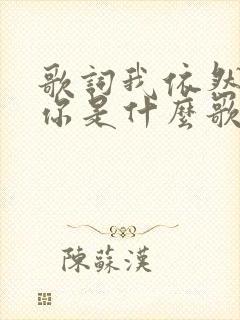 歌詞我依然
你是什麼歌
陳蘇漢